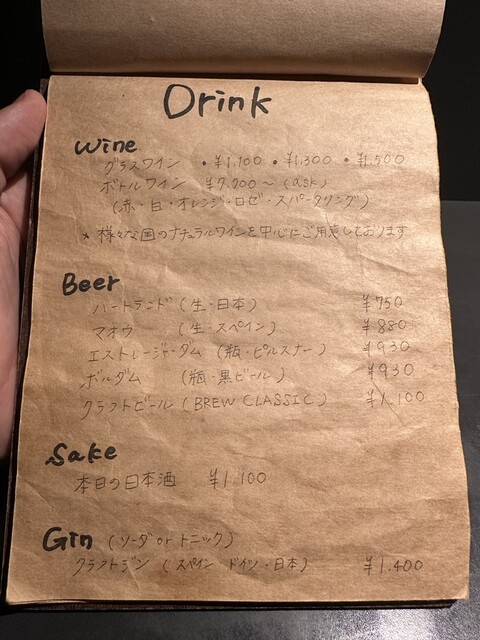 Drink
Wine
グラスワイン ・¥1,100 ・¥1,300 ・¥1,500
ボトルワイン ¥7,700〜 (ask)
(赤・白・オレンジ・ロゼ・スパークリング)
* 様々な国のナチュラルワインを中心にご用意しております
Beer
ハートランド (生・日本) ¥750
マオウ (生・スペイン) ¥880
エストレージャ・ダム (瓶・ピルスナー) ¥930
ボルダム (瓶・黒ビール) ¥930
クラフトビール (BREW CLASSIC) ¥1,100
Sake
本日の日本酒 ¥1,100
Gin (ソーダ or トニック)
クラフトジン (スペイン ドイツ・日本) ¥1,400